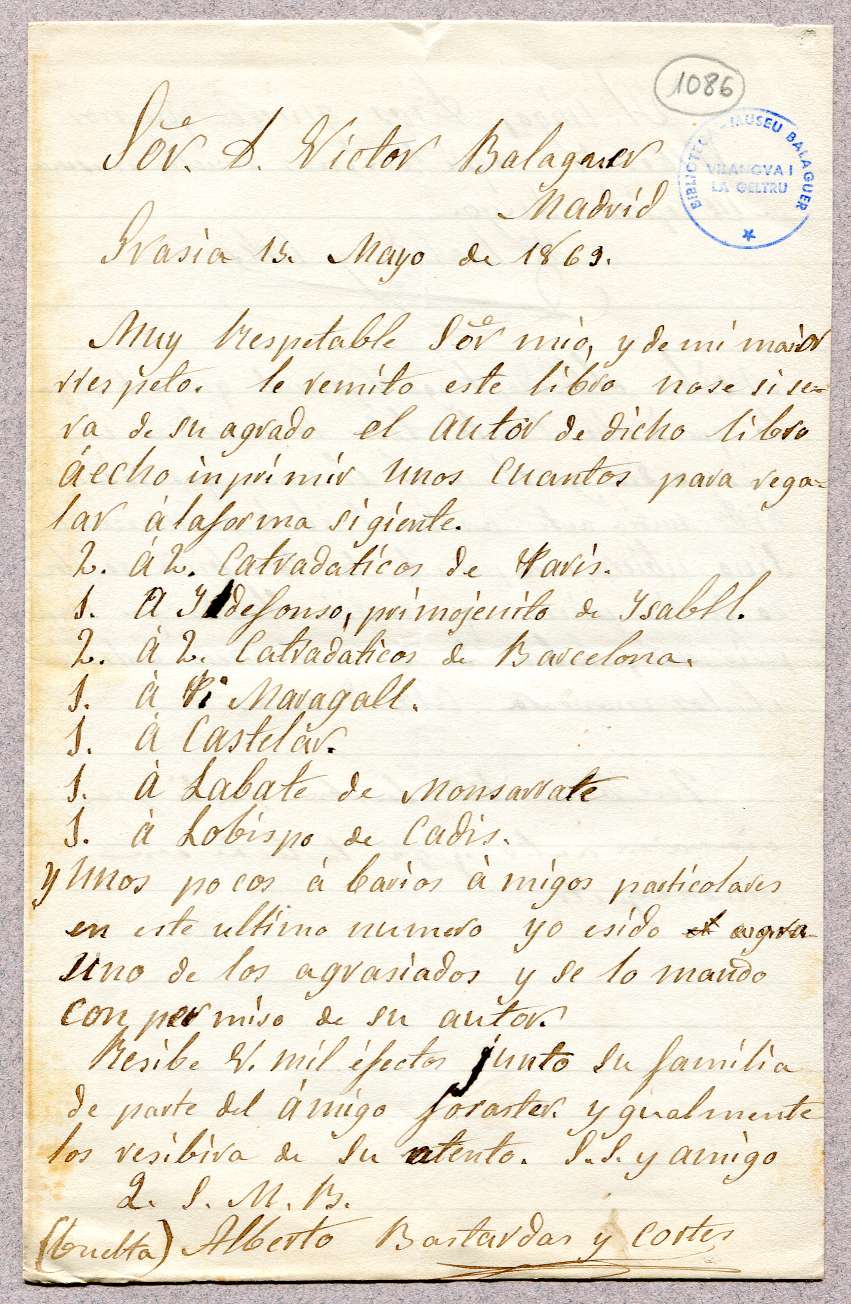 1086
BIBLIOTECA - MUSEU BALAGUER
VILANOVA I
LA GELTRU
Sor. D. Victor Balaguer
Madrid
Grasia 15. Mayo de 1869.
Muy Rrespetable Sor mio, y de mi maior
rrespeto. le remito este libro nose si se-
ra de su agrado el autor de dicho libro
áecho inprimir unos cuantos para rega-
lar á laforma sigiente.
2. á 2. Catradaticos de Paris.
1. A Yldefonso, primojenito de Ysabll.
2. á 2. Catradaticos de Barcelona.
1. á Pi Maragall.
1. á Castelár.
1. á Labate de Monsarrate
1. á Lobispo de Cadis.
y unos pocos á barios ámigos particolares
en este ultimo numero yo esido
uno de los agrasiados y se lo mando
con permiso de su autor.
Resibe V. mil éfectos junto su familia
de parte del ámigo foraster. ygualmente
los resibira de su atento. S.S. y amigo
Q. S. M. B.
(buelta) Alberto Bastardas y Cortes